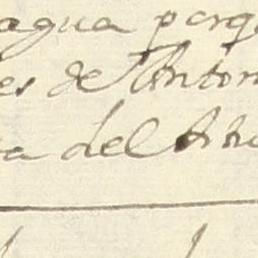 agua porq
es de Anton
a del